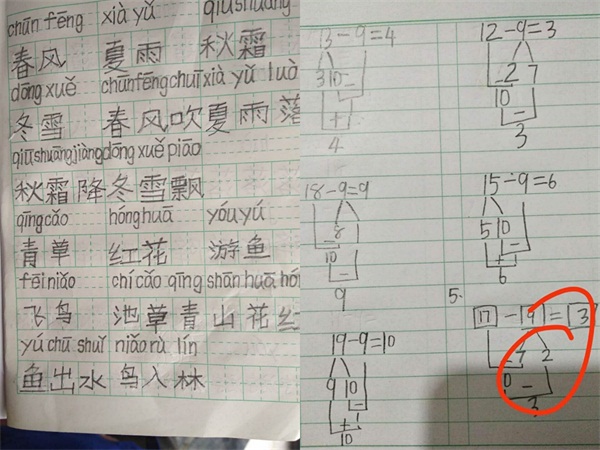 chūn fēng xià yǔ qiū shuāng
春风 夏雨 秋霜
dōng xuě chūn fēng chuī xià yǔ luò
冬雪 春风吹 夏雨落
qiū shuāng jiàng dōng xuě piāo
秋霜降 冬雪飘
qīng cǎo hóng huā yóu yú
青草 红花 游鱼
fēi niǎo chí cǎo qīng shān huā hó
飞鸟 池草青 山花红
yú chū shuǐ niǎo rù lín
鱼出水 鸟入林
13-9=4
3 10
4
18-9=9
8
10
9
19-9=10
9 10
1
10
12-9=3
2 7
10
3
15-9=6
5 10
6
5.
17-9=3
7 2
10
3